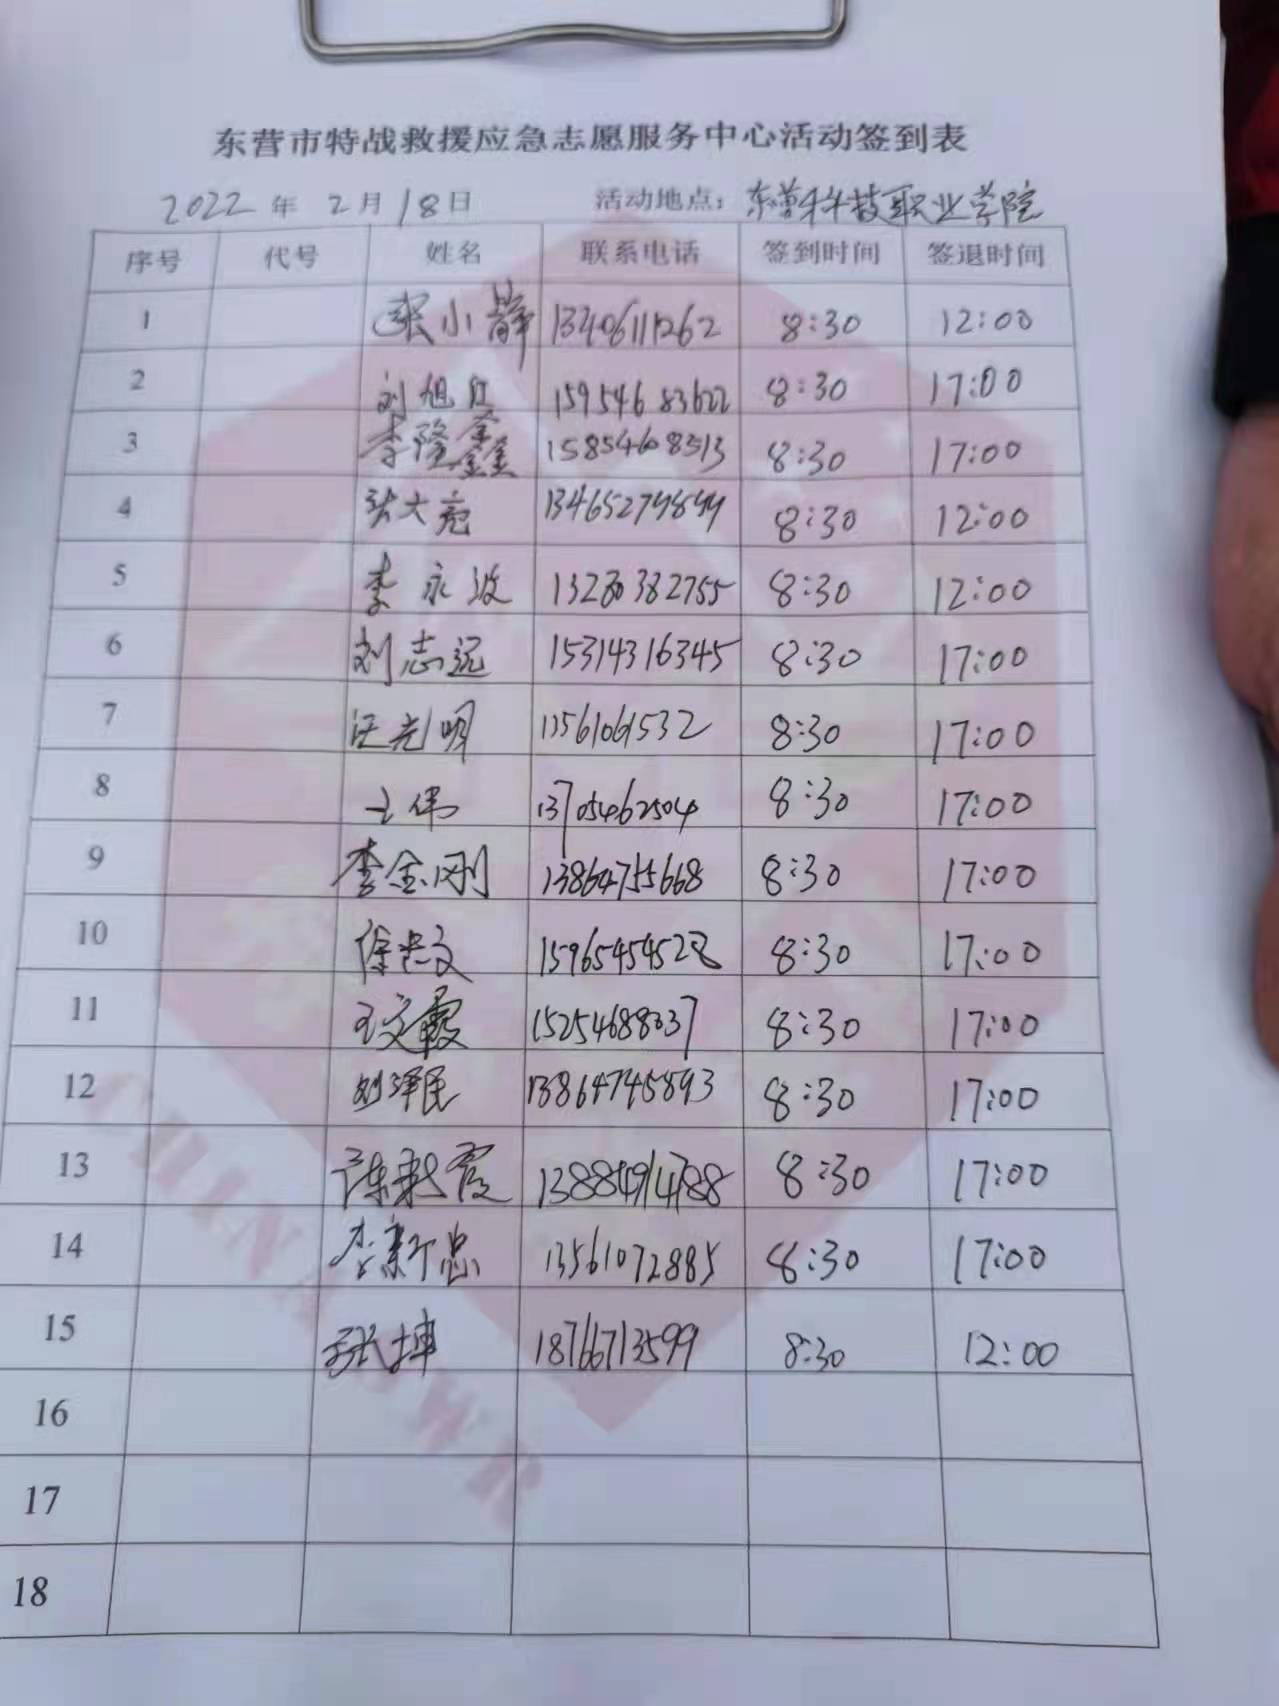 东营市特战救援应急志愿服务中心活动签到表
2022 年 2月 18日 活动地点：东营科技职业学院
序号 代号 姓名 联系电话 签到时间 签退时间
1 张小静 13406111262 8:30 12:00
2 刘旭红 15954683622 8:30 17:00
3 李隆鑫 15854608513 8:30 17:00
4 张大亮 8:30 12:00
5 李永波 8:30 12:00
6 刘志远 15314316345 8:30 17:00
7 汪光明 8:30 17:00
8 王伟 13705462504 8:30 17:00
9 李金刚 13864755668 8:30 17:00
10 徐忠文 15965454528 8:30 17:00
11 王文霞 15254688037 8:30 17:00
12 刘泽民 13864745893 8:30 17:00
13 8:30 17:00
14 李新忠 13561072885 8:30 17:00
15 张坤 18766713599 8:30 12:00
16
17
18